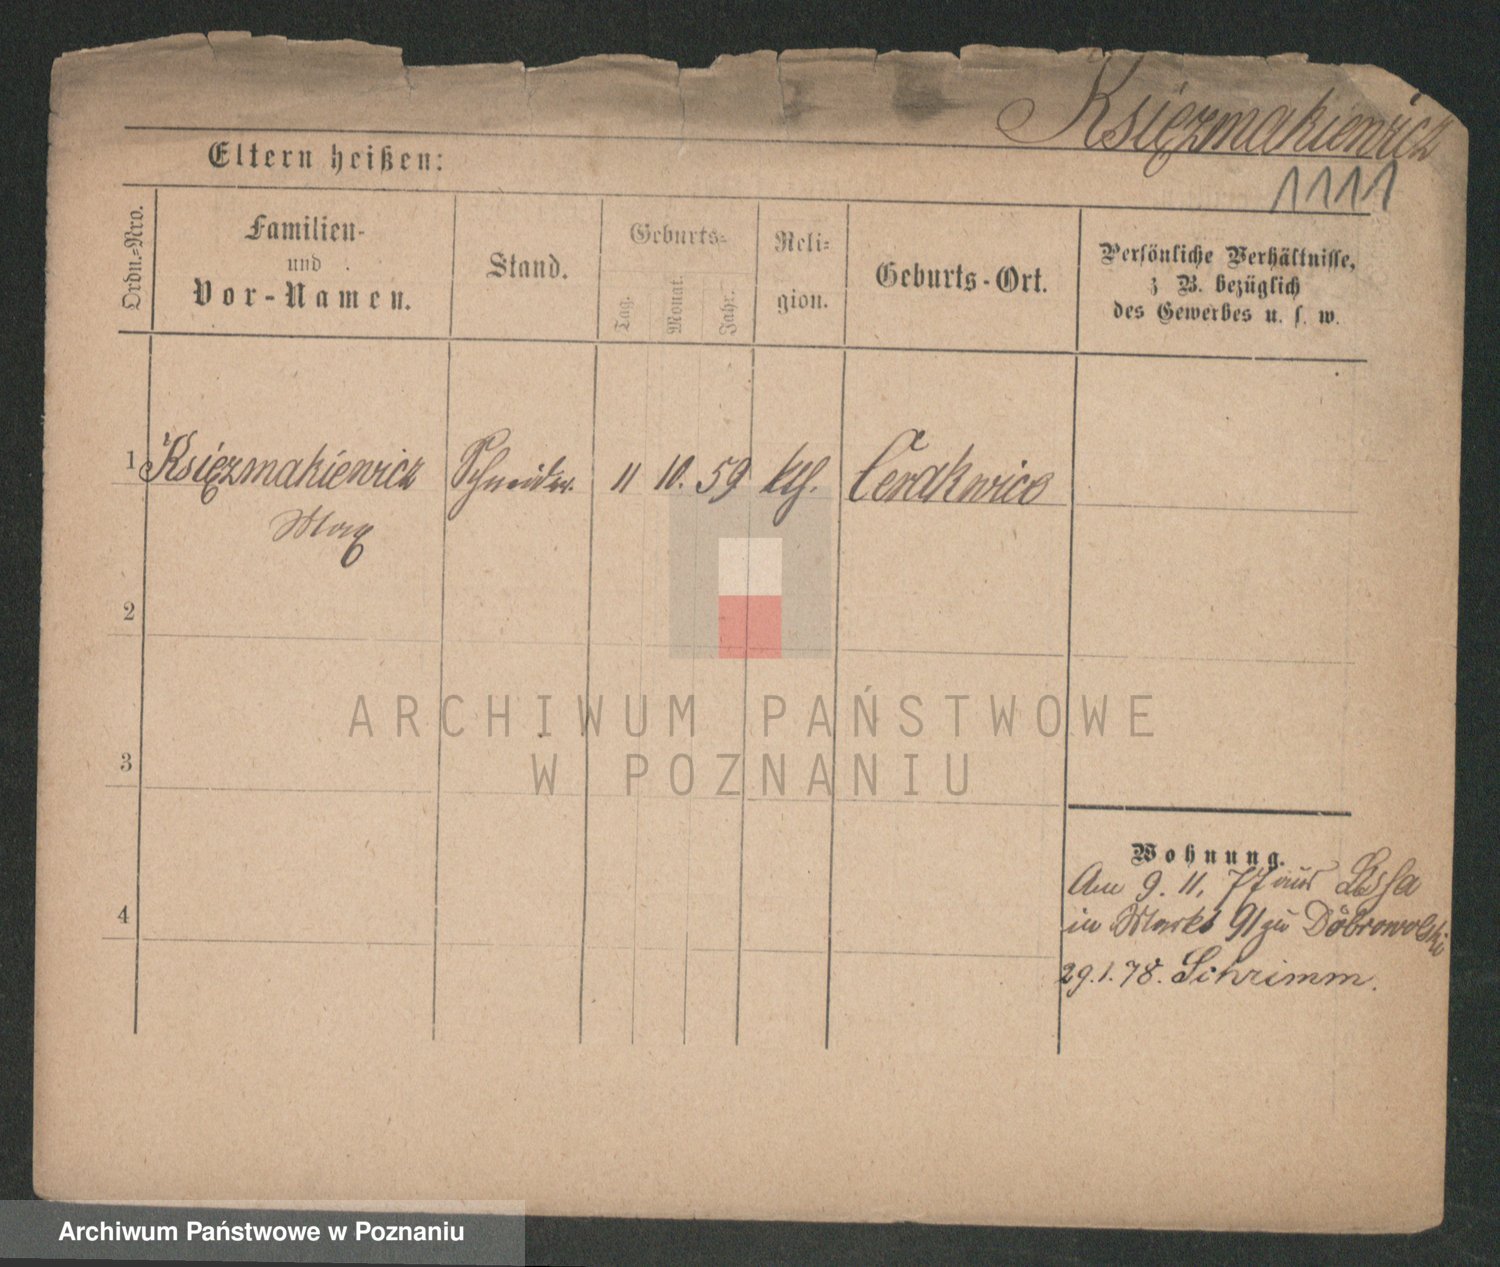 Księzmakiewicz
1111
Eltern heißen:
Ordn.-Nro.
Familien-
und
Vor-Namen.
Stand.
Geburts-
Tag.
Monat.
Jahr.
Reli-
gion.
Geburts-Ort.
Persönliche Verhältnisse,
z B. bezüglich
des Gewerbes u. s. w.
1 Księzmakiewicz Schneider. 11 10. 59 kth. Cerekwice
Max
2
3
4
Wohnung.
Am 9. 11. 77 aus Lissa
in Markt 91 zu Dobrowolski
29.1.78. Schrimm.
ARCHIWUM PAŃSTWOWE
W POZNANIU
Archiwum Państwowe w Poznaniu